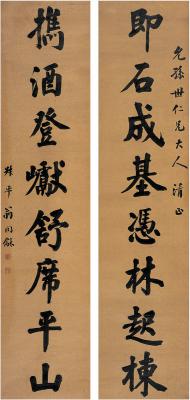 允孫世仁兄大人清正
即石成基憑林起棟
攜酒登巘舒席平山
叔平翁同龢